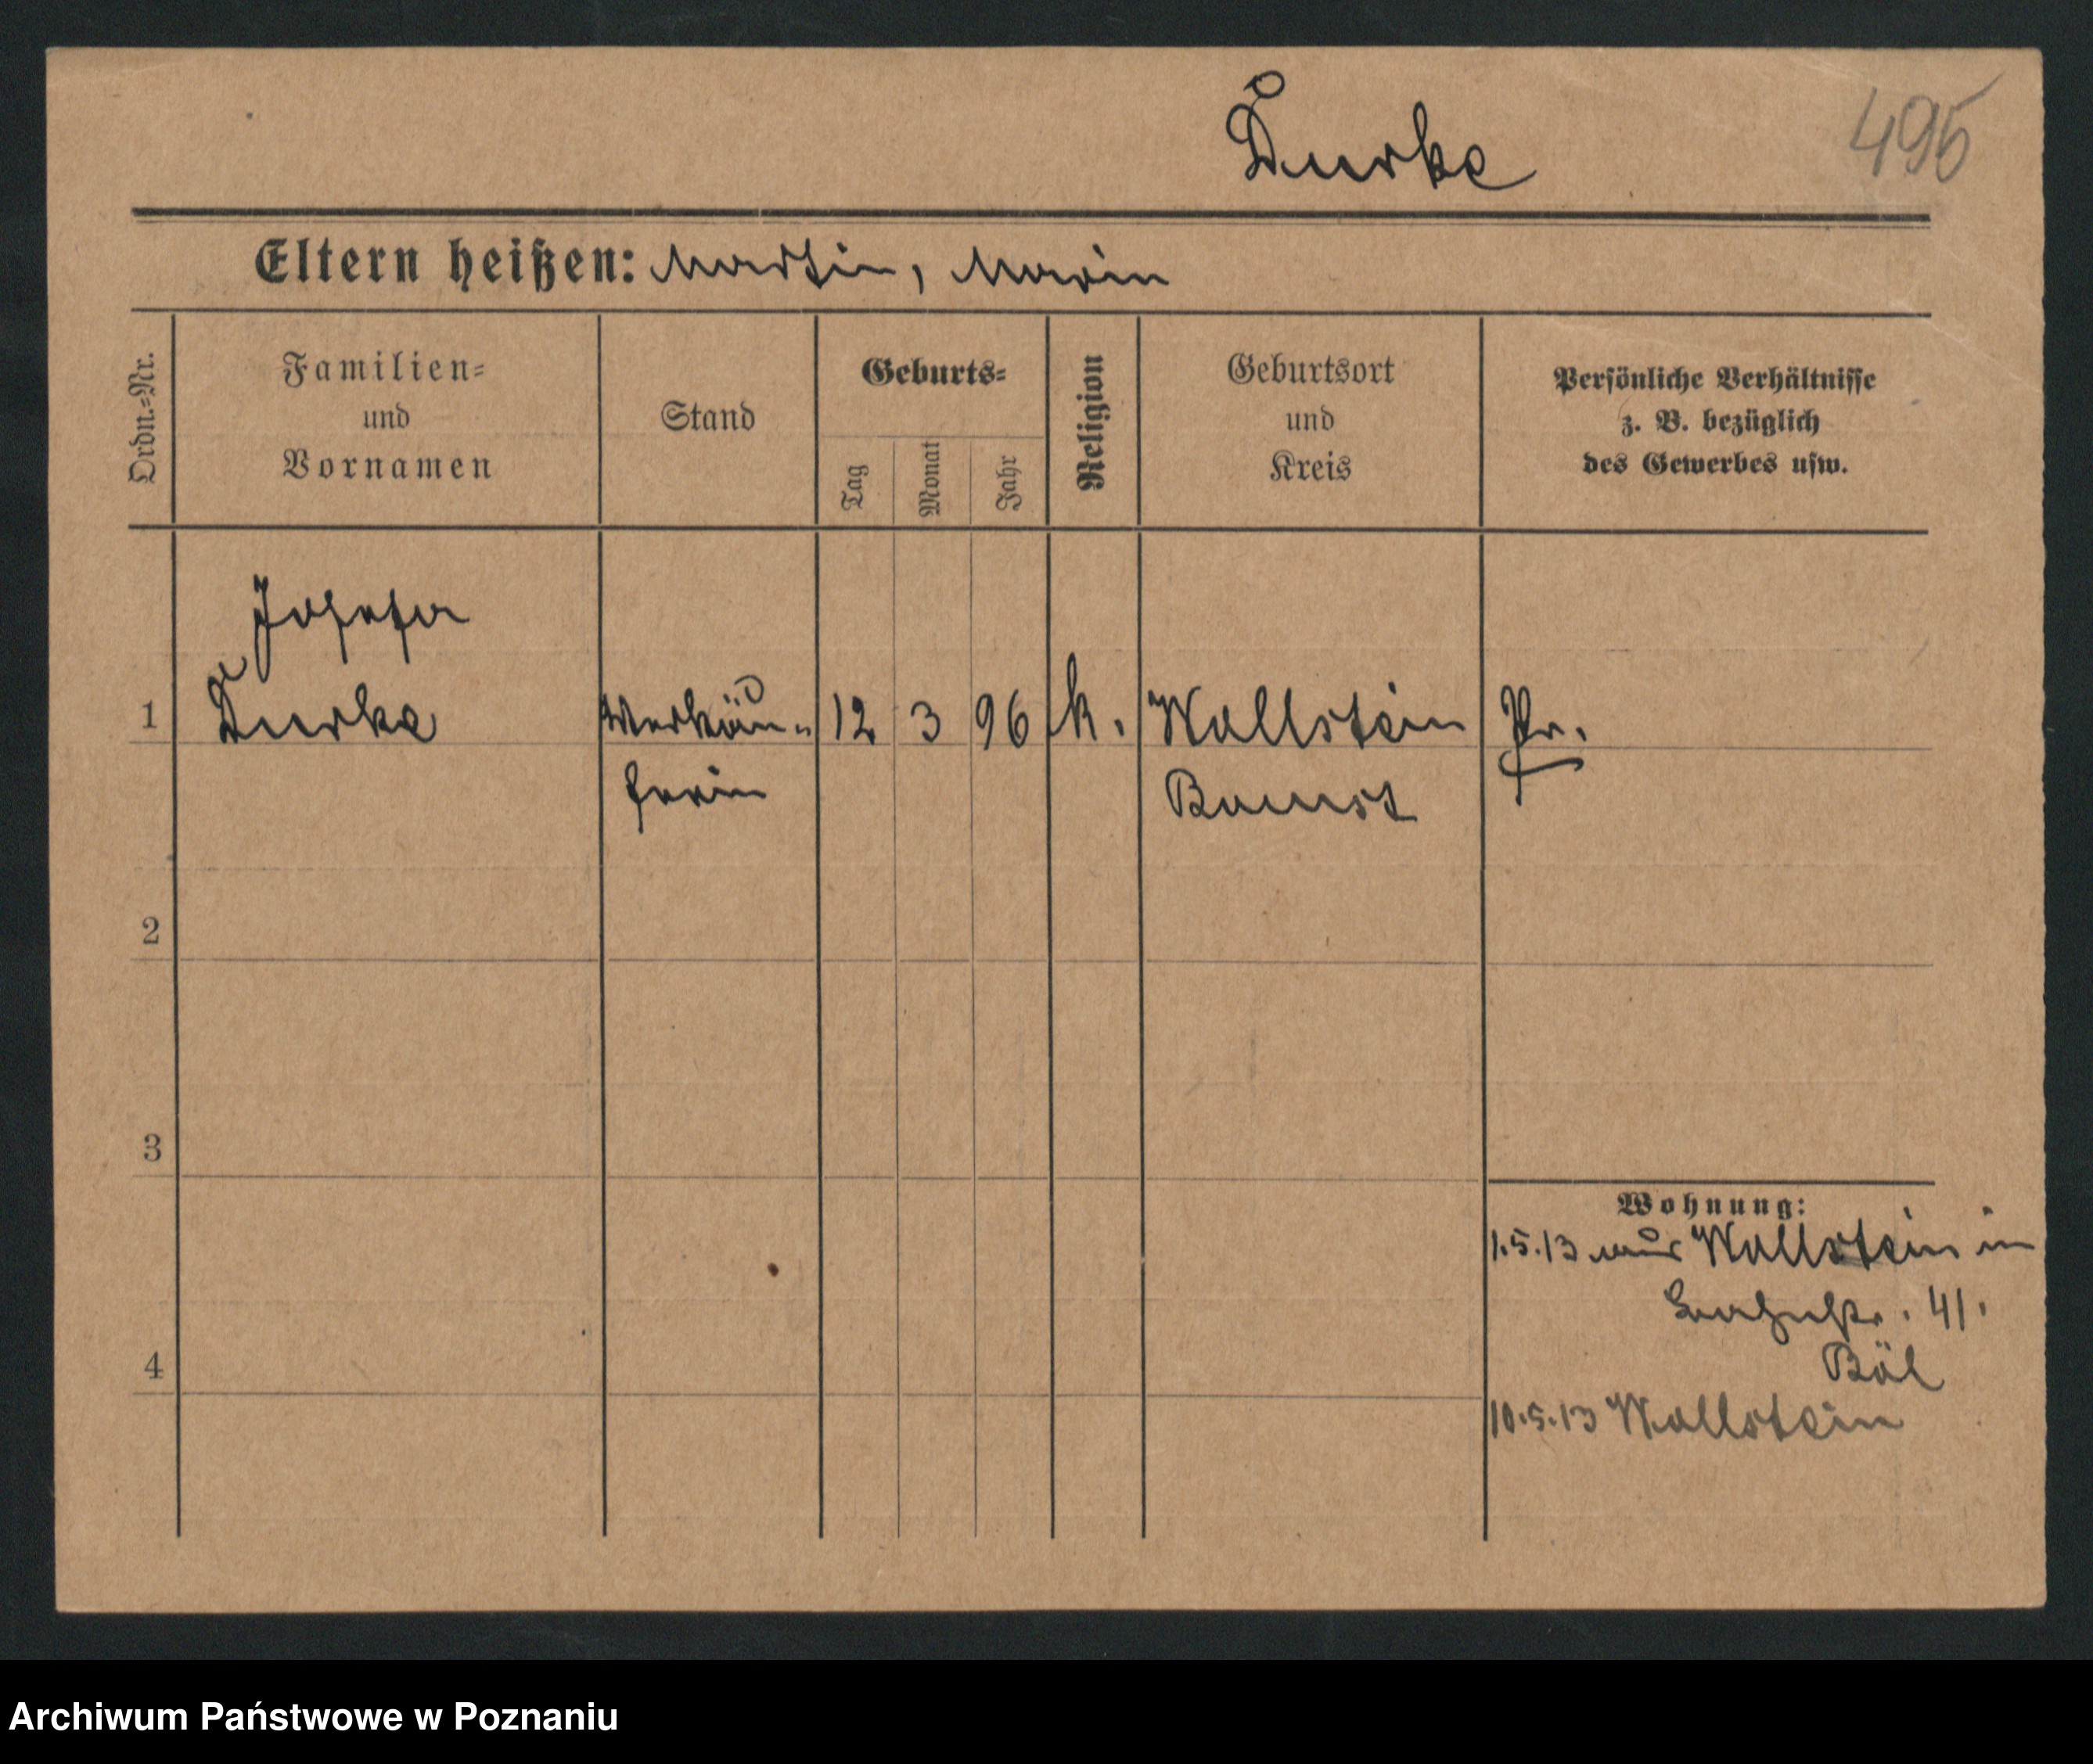 Durke
495
Eltern heißen: Martin, Marie
Ordn.-Nr.
Familien-
und
Vornamen
Stand
Geburts-
Tag
Monat
Jahr
Religion
Geburtsort
und
Kreis
Persönliche Verhältnisse
z. B. bezüglich
des Gewerbes usw.
Josefa
1 Durke Verkäu- 12 3 96 k. Wollstein Pr.
ferin Bomst
2
3
4
Wohnung:
1.5.13 aus Wollstein in
41.
10.5.13 Wollstein
Archiwum Państwowe w Poznaniu